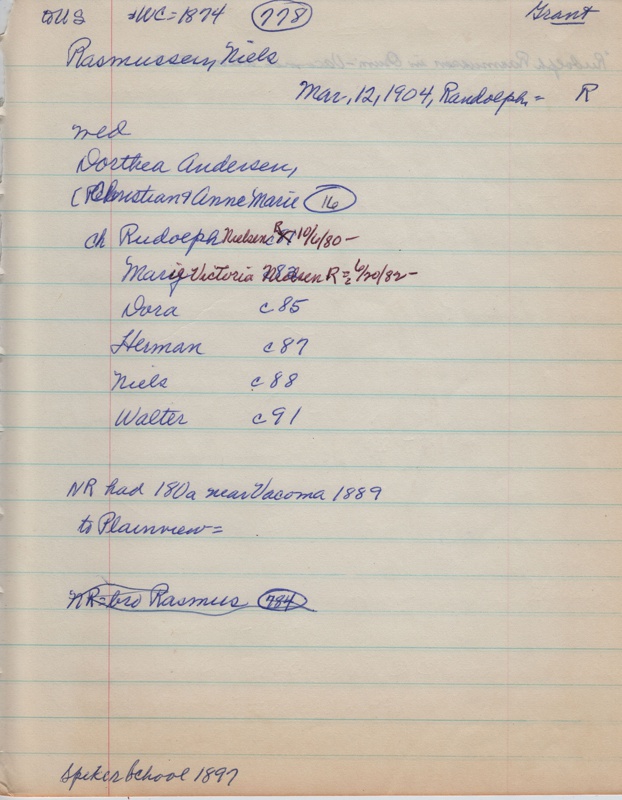 to US → WC = 1874 778 Grant
Rasmussen, Niels
Mar, 12, 1904, Randolph = R
wed
Dorthea Andersen,
(Christian & Anne Marie 16
ch Rudolph Nielsen R 10/6/80 -
Marie Victoria Nielsen R = c 6/20/82 -
Dora c 85
Herman c 87
Niels c 88
Walter c 91
NR had 180a near Vacoma 1889
to Plainview =
NR = bro Rasmus 784
Spiker School 1897